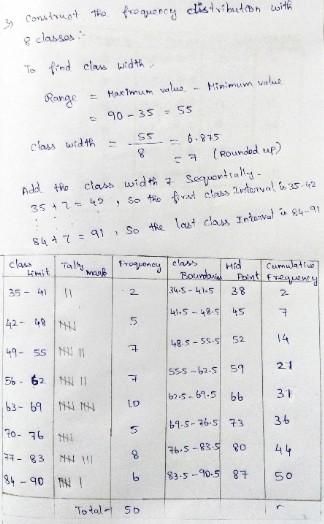 3) Construct the frequency distribution with
8 classes :-
To find class width.
Range = Maximum value - Minimum value
= 90 - 35 = 55
Class width = 55/8 = 6.875
= 7 (Rounded up)
Add the class width 7 Sequentially -
35 + 7 = 42, So the first class Interval is 35-42
⋮
84 + 7 = 91, So the last class Interval is 84-91
Class limit | Tally mark | Frequency | Class Boundaries | Mid Point | Cumulative Frequency
35 - 41 | || | 2 | 34.5 - 41.5 | 38 | 2
42 - 48 | 𝍸 | 5 | 41.5 - 48.5 | 45 | 7
49 - 55 | 𝍸 || | 7 | 48.5 - 55.5 | 52 | 14
56 - 62 | 𝍸 || | 7 | 55.5 - 62.5 | 59 | 21
63 - 69 | 𝍸 𝍸 | 10 | 62.5 - 69.5 | 66 | 31
70 - 76 | 𝍸 | 5 | 69.5 - 76.5 | 73 | 36
77 - 83 | 𝍸 ||| | 8 | 76.5 - 83.5 | 80 | 44
84 - 90 | 𝍸 | | 6 | 83.5 - 90.5 | 87 | 50
Total → 50